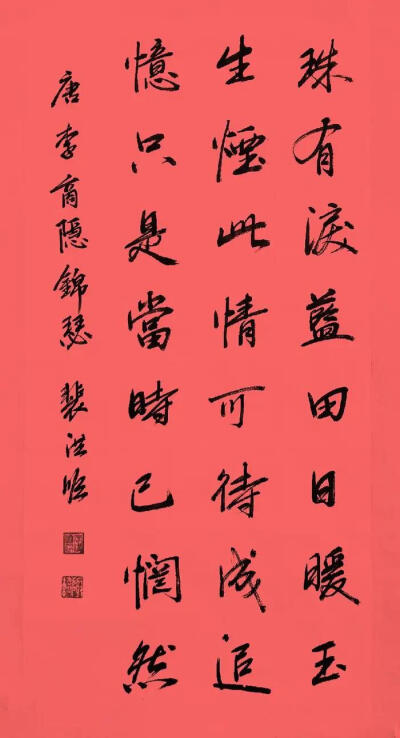 珠有淚藍田日暖玉
生煙此情可待成追
憶只是當時已惘然
唐李商隱錦瑟 裴洪順